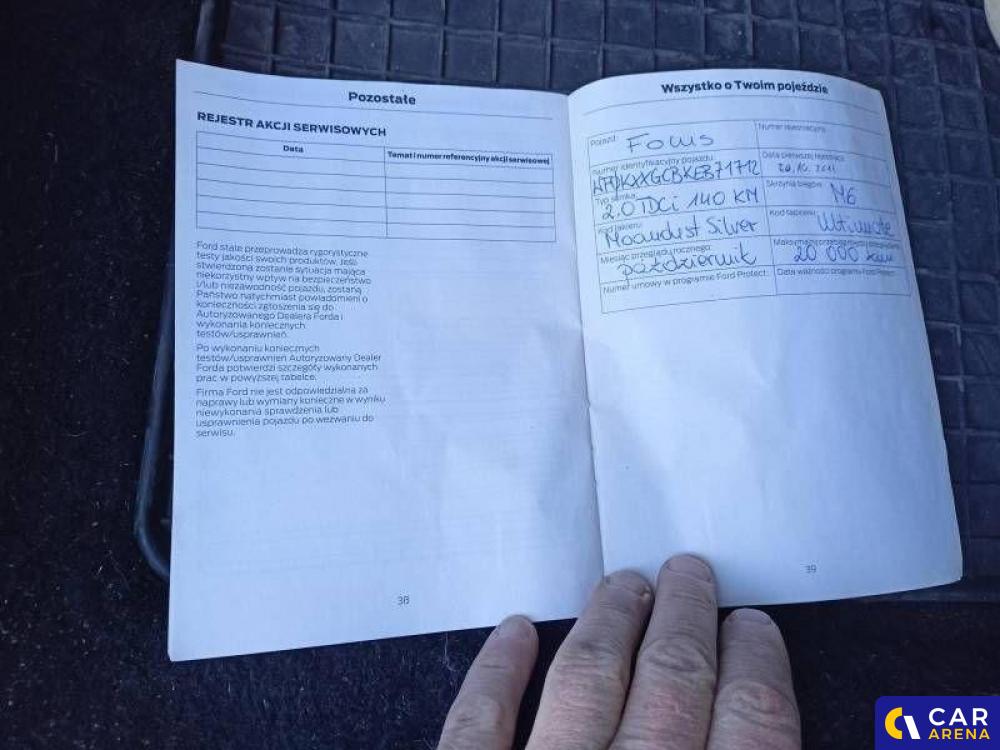 Pozostałe
REJESTR AKCJI SERWISOWYCH
Data
Temat i numer referencyjny akcji serwisowej
Ford stale przeprowadza rygorystyczne
testy jakości swoich produktów. Jeśli
stwierdzona zostanie sytuacja mająca
niekorzystny wpływ na bezpieczeństwo
i/lub niezawodność pojazdu, zostaną
Państwo natychmiast powiadomieni o
konieczności zgłoszenia się do
Autoryzowanego Dealera Forda i
wykonania koniecznych
testów/usprawnień.
Po wykonaniu koniecznych
testów/usprawnień Autoryzowany Dealer
Forda potwierdzi szczegóły wykonanych
prac w powyższej tabelce.
Firma Ford nie jest odpowiedzialna za
naprawy lub wymiany konieczne w wyniku
niewykonania sprawdzenia lub
usprawnienia pojazdu po wezwaniu do
serwisu.
38
Wszystko o Twoim pojeździe
Pojazd: Focus
Numer rejestracyjny
Numer identyfikacyjny pojazdu:
Data pierwszej rejestracji
Typ silnika:
2.0 TDCi 140 KM
Skrzynia biegów:
M6
Kod lakieru:
Moondust Silver
Kod tapicerki:
Miesiąc przeglądu rocznego:
październik
20 000 km
Numer umowy w programie Ford Protect:
Data ważności programu Ford Protect:
39
CAR
ARENA